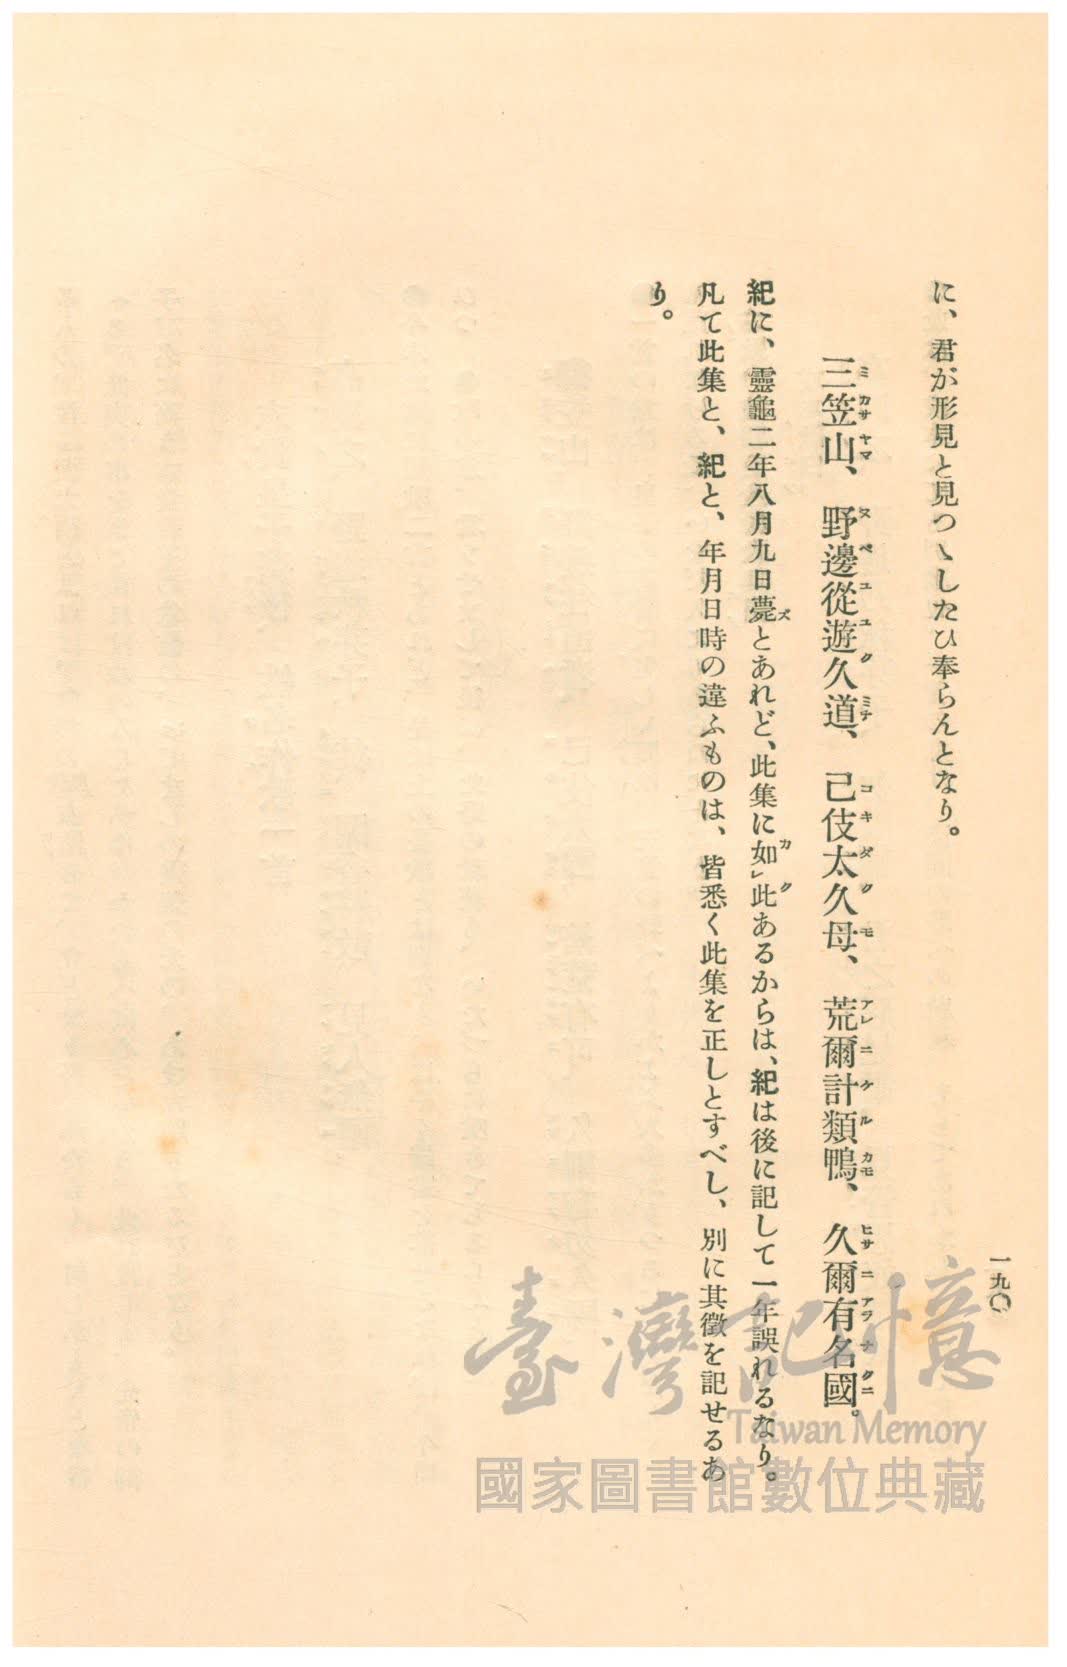 一九〇
に、君が形見と見つゝしたひ奉らんとなり。
三笠山、野邊從遊久道、己伎太久母、荒爾計類鴨、久爾有名國。
ミカサヤマ ヌベユユクミチ コキダクモ アレニケルカモ ヒサニアラナクニ
紀に、靈龜二年八月九日薨とあれど、此集に如㆑此あるからは、紀は後に記して一年誤れるなり。
ズ カク
凡て此集と、紀と、年月日時の違ふものは、皆悉く此集を正しとすべし、別に其徵を記せるあ
り。
臺灣記憶
Taiwan Memory
國家圖書館數位典藏